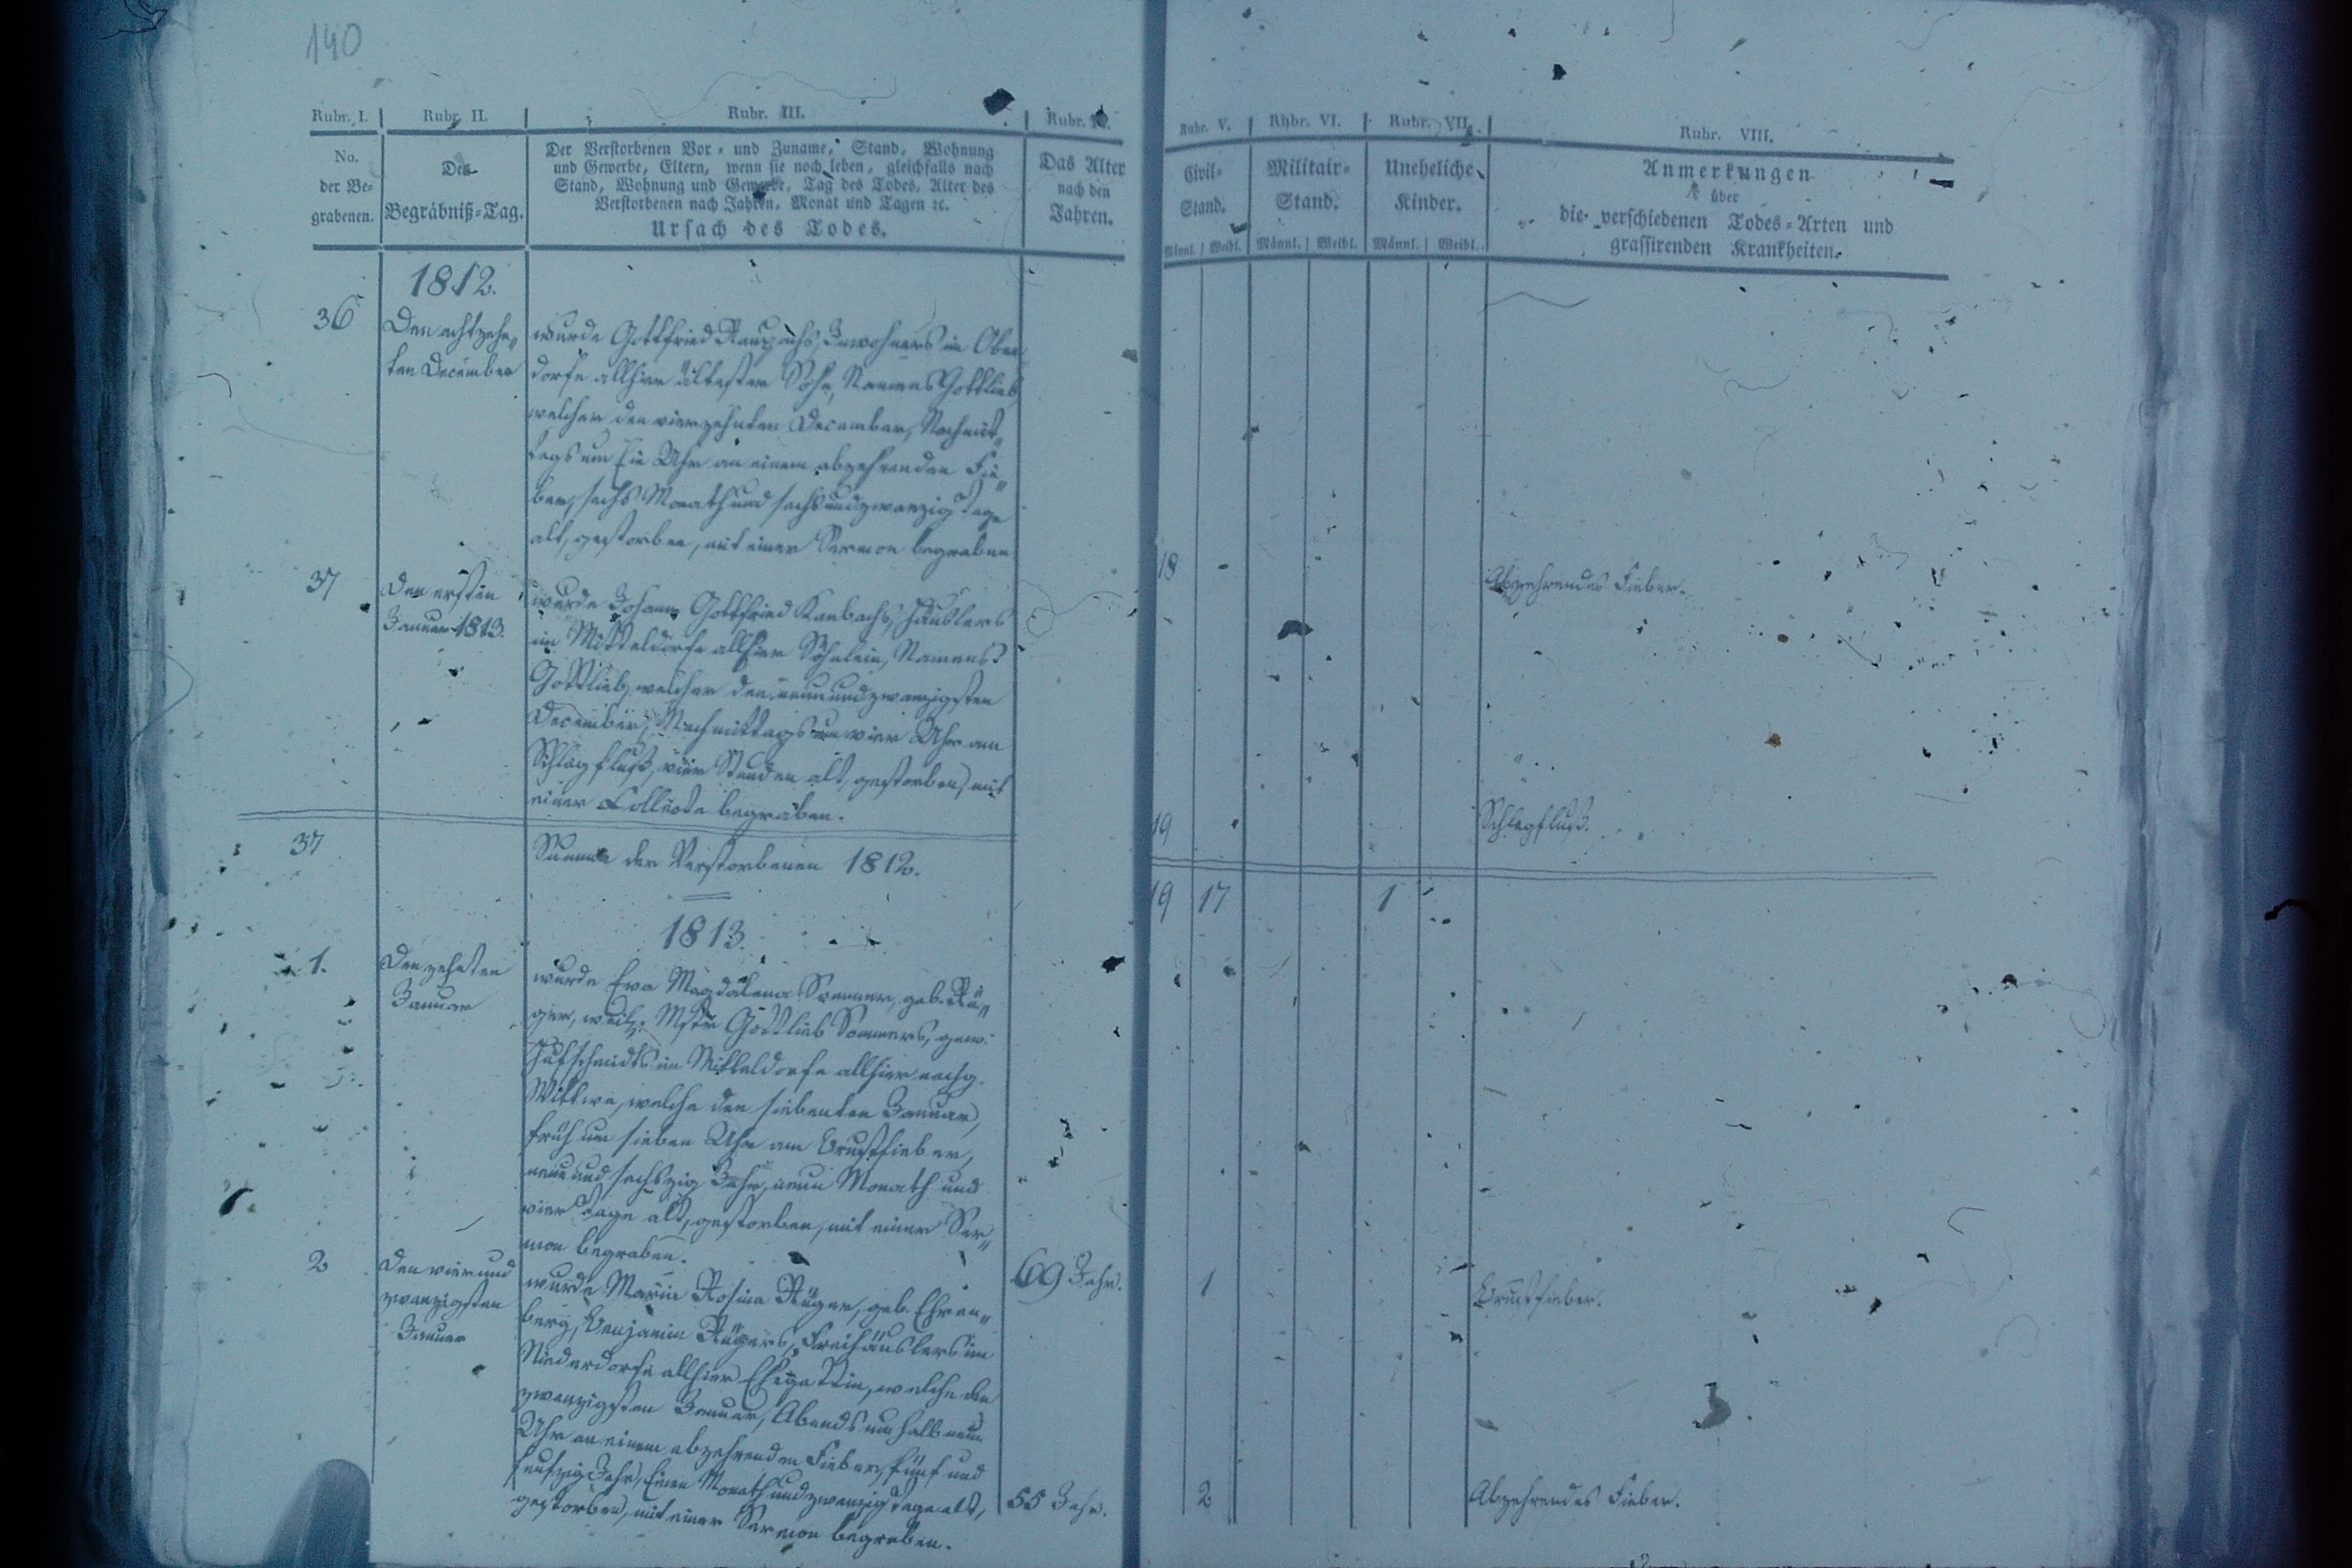 140
Rubr. I.
Rubr. II.
Rubr. III.
Rubr. IV.
Rubr. V.
Rubr. VI.
Rubr. VII.
Rubr. VIII.
No.
der Be-
grabenen.
Der
Begräbniß-Tag.
Der Verstorbenen Vor- und Zuname, Stand, Wohnung
und Gewerbe, Eltern, wenn sie noch leben, gleichfalls nach
Stand, Wohnung und Gewerbe, Tag des Todes, Alter des
Verstorbenen nach Jahren, Monat und Tagen ꝛc.
Ursach des Todes.
Das Alter
nach den
Jahren.
Civil-
Stand.
Männl. Weibl.
Militair-
Stand.
Männl. Weibl.
Uneheliche
Kinder.
Männl. Weibl.
Anmerkungen
über
die verschiedenen Todes-Arten und
grassirenden Krankheiten.
1812.
36
Den achtzehn-
ten December
wurde Gottfried Raupachs, Inwohners im Ober-
dorfe allhier ältester Sohn, Namens Gottlieb
welcher den vierzehnten December, Nachmit-
tags um Uhr an einem abzehrenden Fie-
ber, sechs Monath und sechsundzwanzig Tage
alt, gestorben, mit einer Sermon begraben
18
Abzehrendes Fieber.
37
Den ersten
Januar 1813.
wurde Johann Gottfried Raubachs, Häuslers
im Mitteldorfe allhier Söhnlein, Namens
Gottlieb, welcher den neunundzwanzigsten
December, Nachmittags um vier Uhr am
Schlagfluß, vier Stunden alt, gestorben, mit
einer Collecte begraben.
19
Schlagfluß.
37
Summa der Verstorbenen 1812.
19 17 1
1813.
1.
Den zehnten
Januar
wurde Eva Magdalena Sommer, geb. Rü-
ger, weil. Mstr Gottlieb Sommers, gew.
Hufschmidts im Mitteldorfe allhier nachg.
Wittwe, welche den siebenten Januar,
früh um sieben Uhr am Brustfieber,
neun und sechszig Jahr, neun Monath und
vier Tage alt, gestorben, mit einer Ser-
mon begraben.
69 Jahr.
1
Brustfieber.
2
Den vier und
zwanzigsten
Januar
wurde Maria Rosina Rüger, geb. Ehren-
berg, Benjamin Rügers, Freihäuslers im
Niederdorfe allhier Ehegattin, welche den
zwanzigsten Januar, Abends um halb neun
Uhr an einem abzehrenden Fieber, fünf und
funfzig Jahr, Einen Monath und zwanzig Tage alt,
gestorben, mit einer Sermon begraben.
55 Jahr.
2
Abzehrendes Fieber.